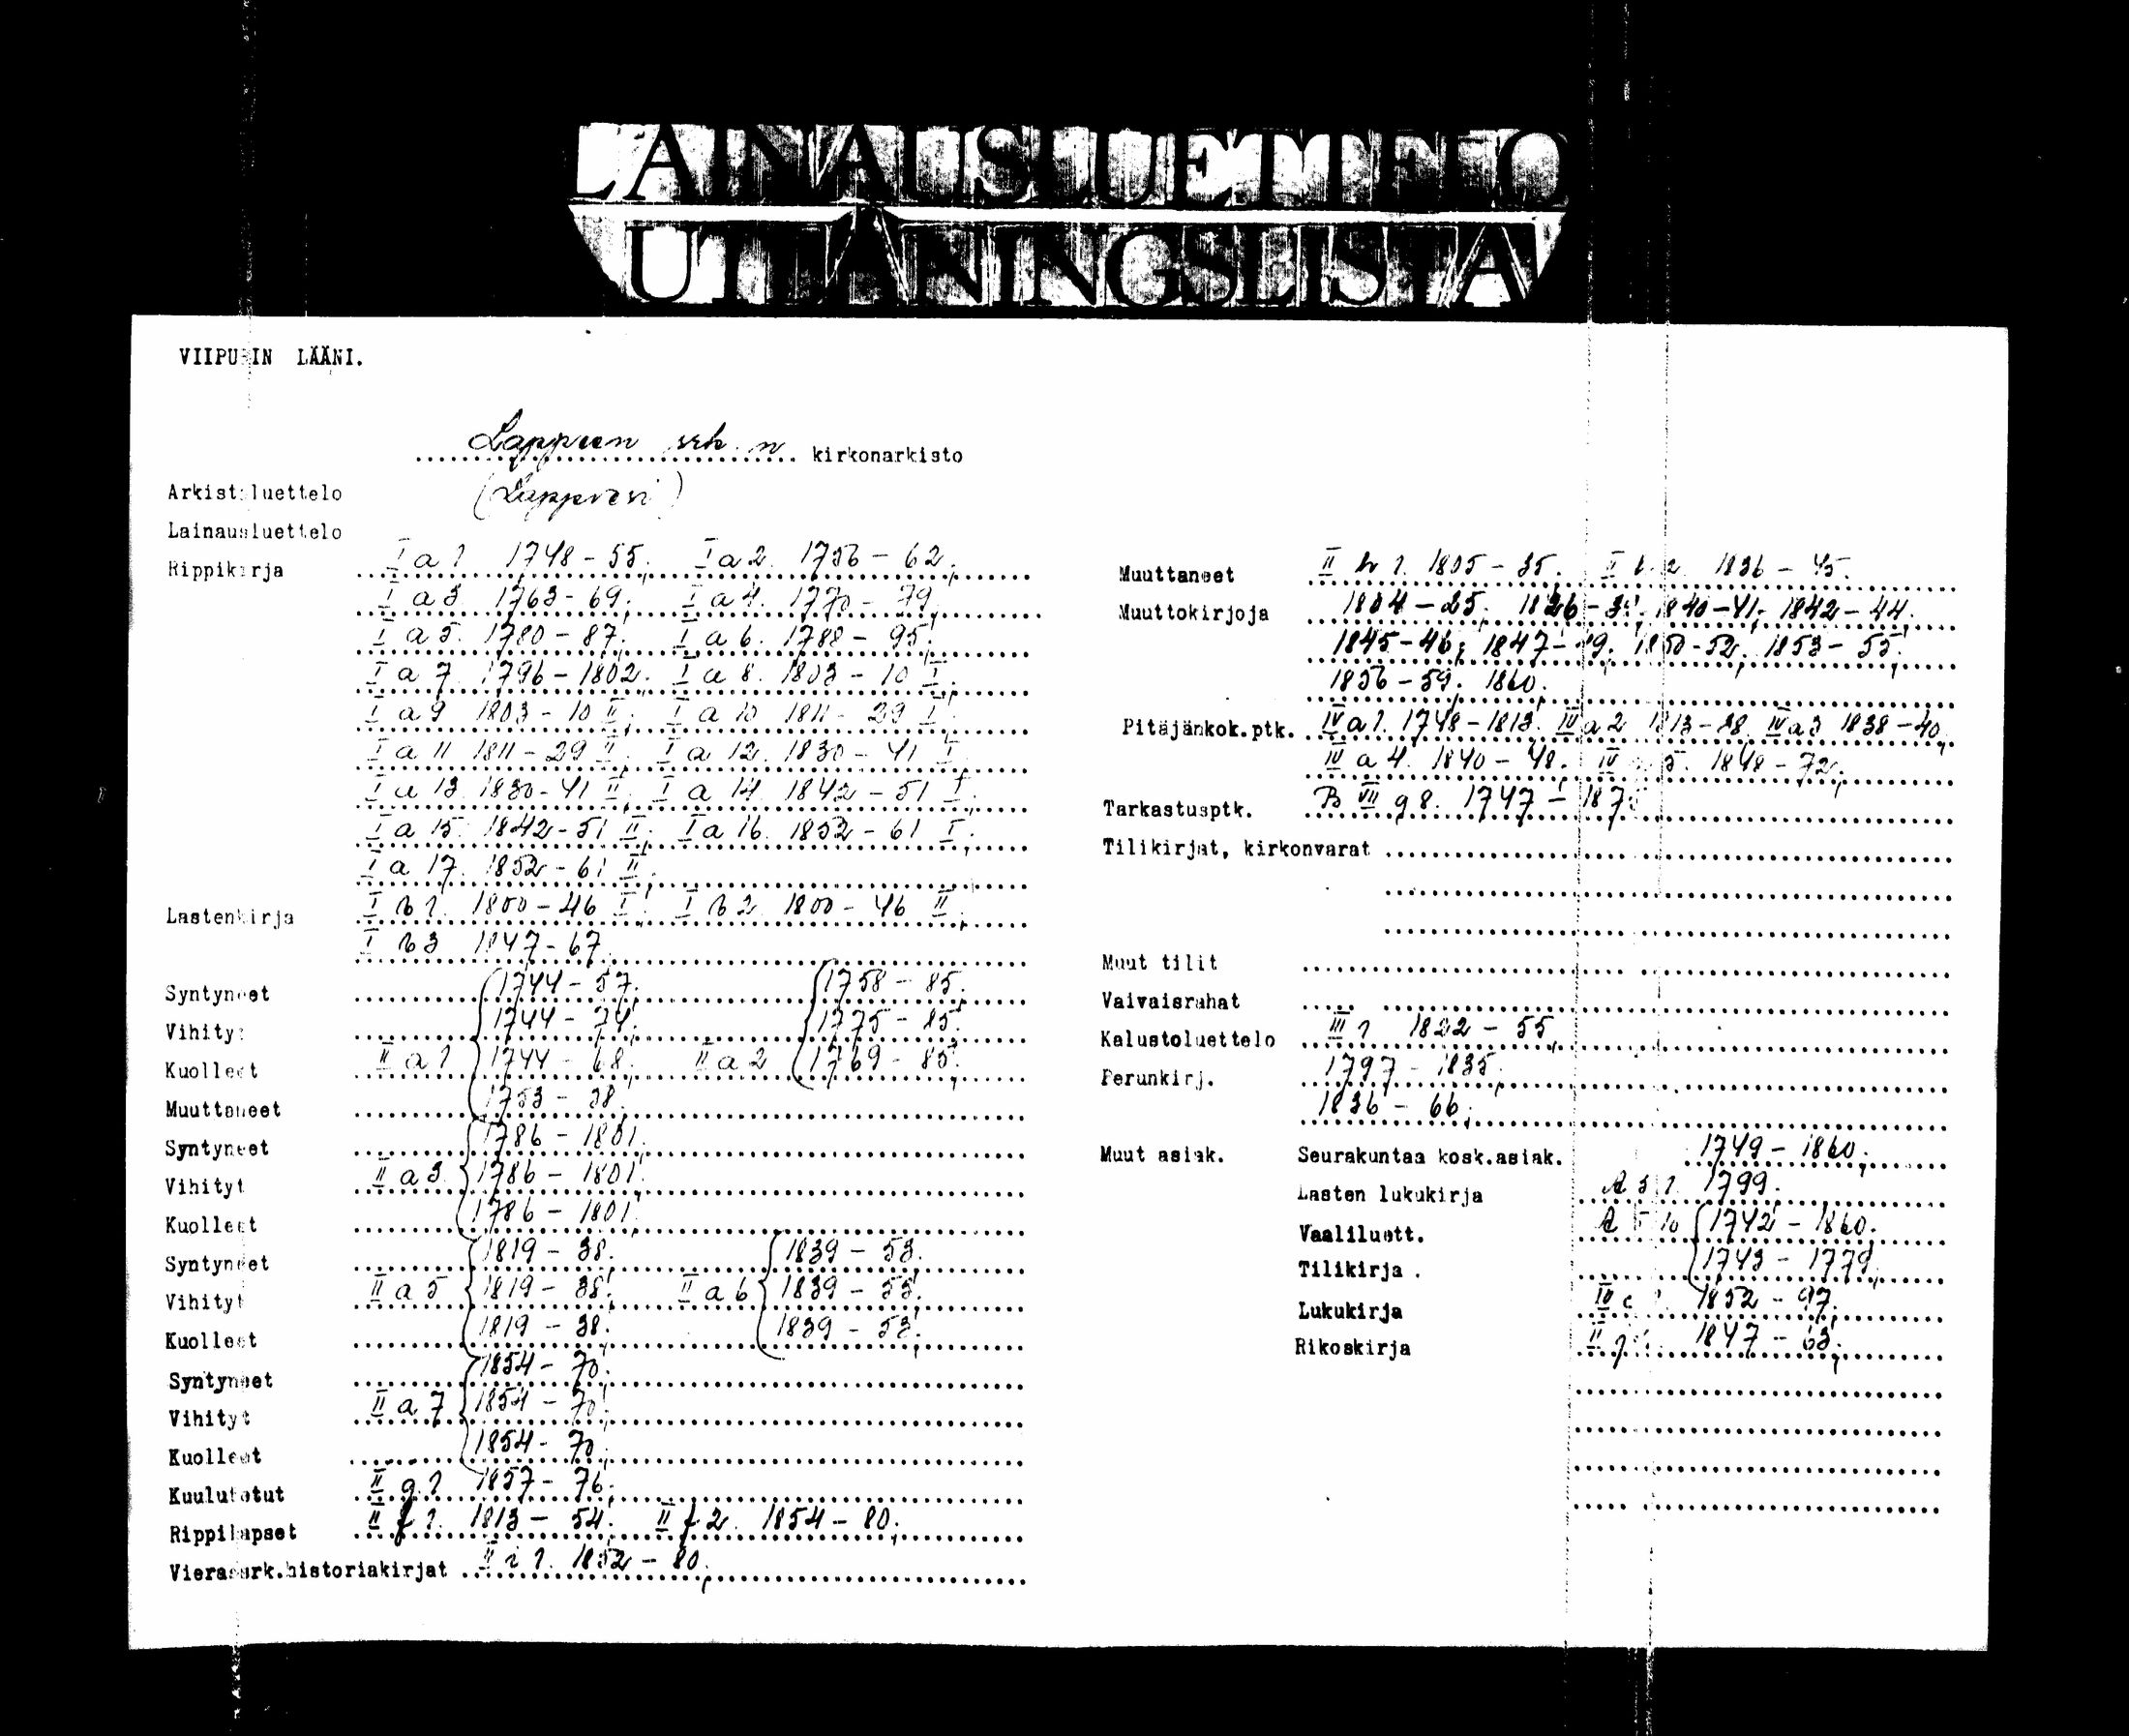 LAINAUSLUETTELO
UTLÅNINGSLISTA
VIIPURIN LÄÄNI.
Lappeen srk.n kirkonarkisto
Arkistoluettelo (Lappvesi)
Lainausluettelo
Rippikirja I a 1 1748-55. I a 2. 1756-62.
I a 3. 1763-69. I a 4. 1770-79.
I a 5. 1780-87. I a 6. 1788-95.
I a 7. 1796-1802. I a 8. 1803-10 I.
I a 9 1803-10 II. I a 10 1811-29 I.
I a 11 1811-29 II. I a 12. 1830-41 I.
I a 13. 1830-41 II. I a 14. 1842-51 I.
I a 15. 1842-51 II. I a 16. 1852-61 I.
I a 17. 1852-61 II.
Lastenkirja I b 1. 1800-46 I. I b 2. 1800-46 II.
I b 3 1847-67.
Syntyneet 1744-57. 1758-85.
Vihityt 1744-74. 1775-85.
Kuolleet II a 1 1744-68. II a 2 1769-85.
Muuttaneet
Syntyneet 1786-1801.
Vihityt II a 3. 1786-1801.
Kuolleet 1786-1801.
Syntyneet 1819-38. 1839-53.
Vihityt II a 5 1819-38. II a 6 1839-53.
Kuolleet 1819-38. 1839-53.
Syntyneet 1854-70.
Vihityt II a 7 1854-70.
Kuolleet 1854-70.
Kuulutetut II g 1 1857-76.
Rippilapset II f 1. 1813-54. II f 2. 1854-80.
Vierassrk.historiakirjat II i 1. 1852-80.
Muuttaneet II b 1. 1805-35. II b 2. 1836-45.
Muuttokirjoja 1804-25. 1840-41. 1842-44.
1845-46. 1847-49. 1850-52. 1853-55.
1856-59. 1860.
Pitäjänkok.ptk. IV a 1. 1748-1813. IV a 2 1813-38. IV a 3 1838-40.
IV a 4. 1840-48. IV a 5. 1848-72.
Tarkastusptk. B VII g 8. 1747-
Tilikirjat, kirkonvarat
Muut tilit
Vaivaisrahat
Kalustoluettelo III 1 1822-55.
Perunkirj. 1797-1835.
1836-66.
Muut asiak. Seurakuntaa kosk.asiak. 1749-1860.
Lasten lukukirja 1799.
Vaaliluett. 1742-1860.
Tilikirja. 1743-1779.
Lukukirja IV c 1852-97.
Rikoskirja II 1847-63.